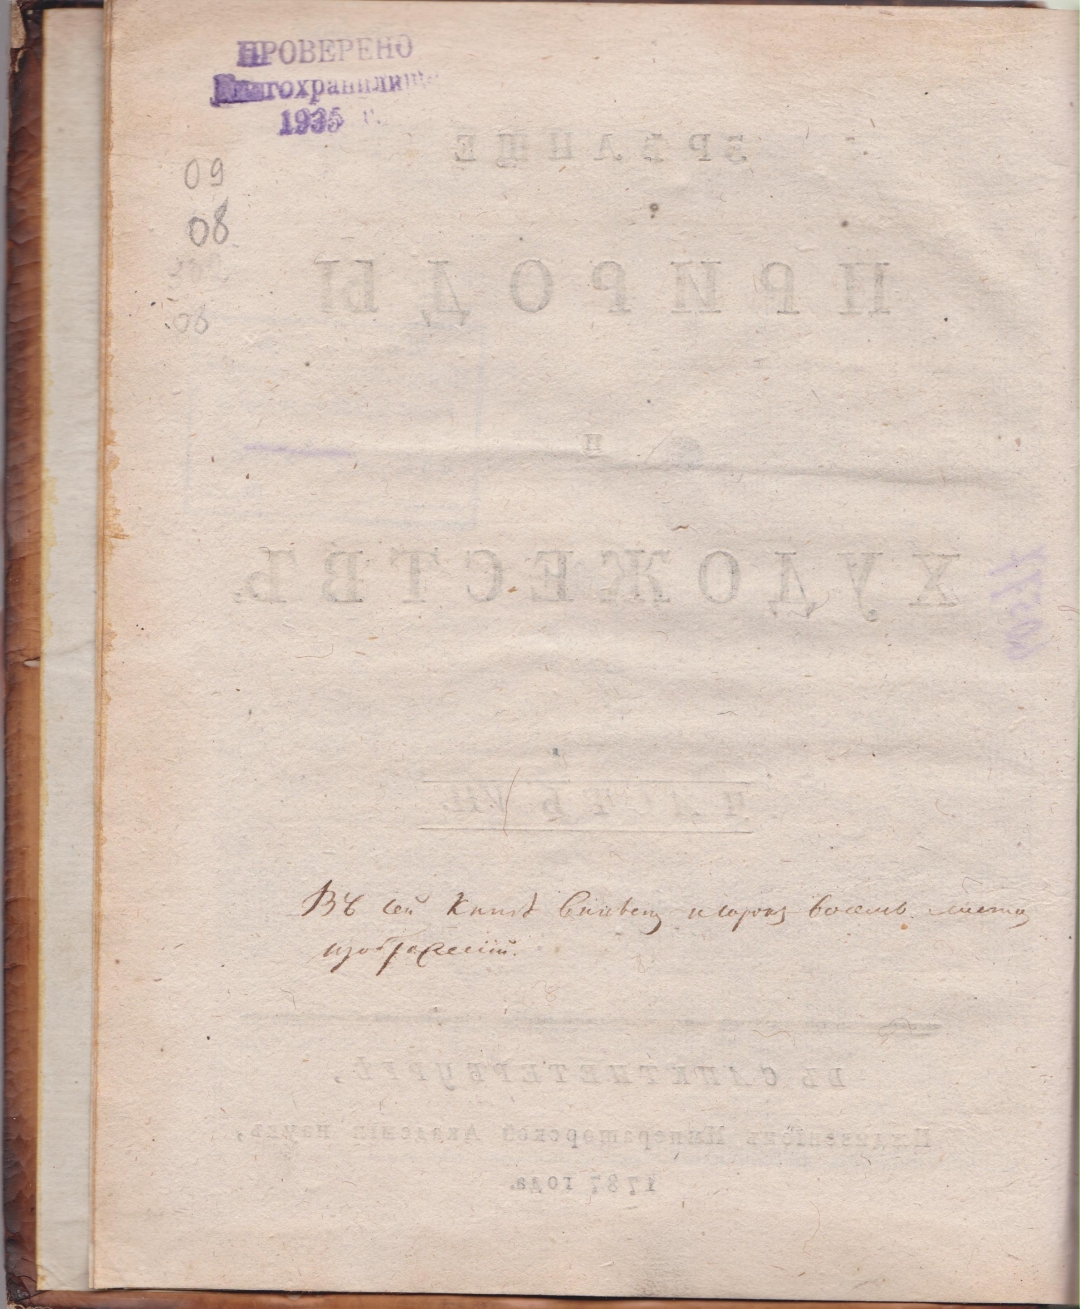 ПРОВЕРЕНО
Книгохранилище
1935 г.
09
08
08
ЗРѢЛИЩЕ
ПРИРОДЫ
И
ХУДОЖЕСТВЪ.
ЧАСТЬ VII.
Въ сей Книгѣ и сорокъ восемь листа
изображеній.
ВЪ САНКТПЕТЕРБУРГѢ,
Иждивеніемъ Императорской Академіи наукъ,
1787 года.